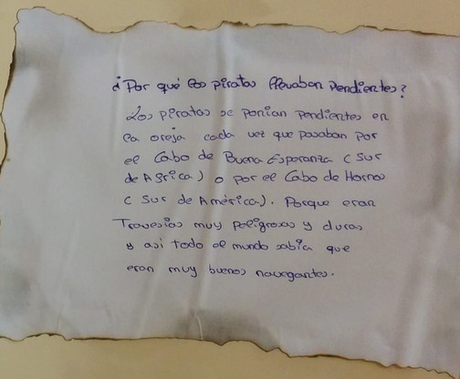 ¿Por qué los piratas llevaban pendientes?
Los piratas se ponian pendientes en
la oreja cada vez que pasaban por
el Cabo de Buena Esperanza (Sur
de Africa) o por el Cabo de Hornos
(Sur de América). Porque eran
Travesias muy peligrosas y duras
y asi todo el mundo sabia que
eran muy buenos navegantes.